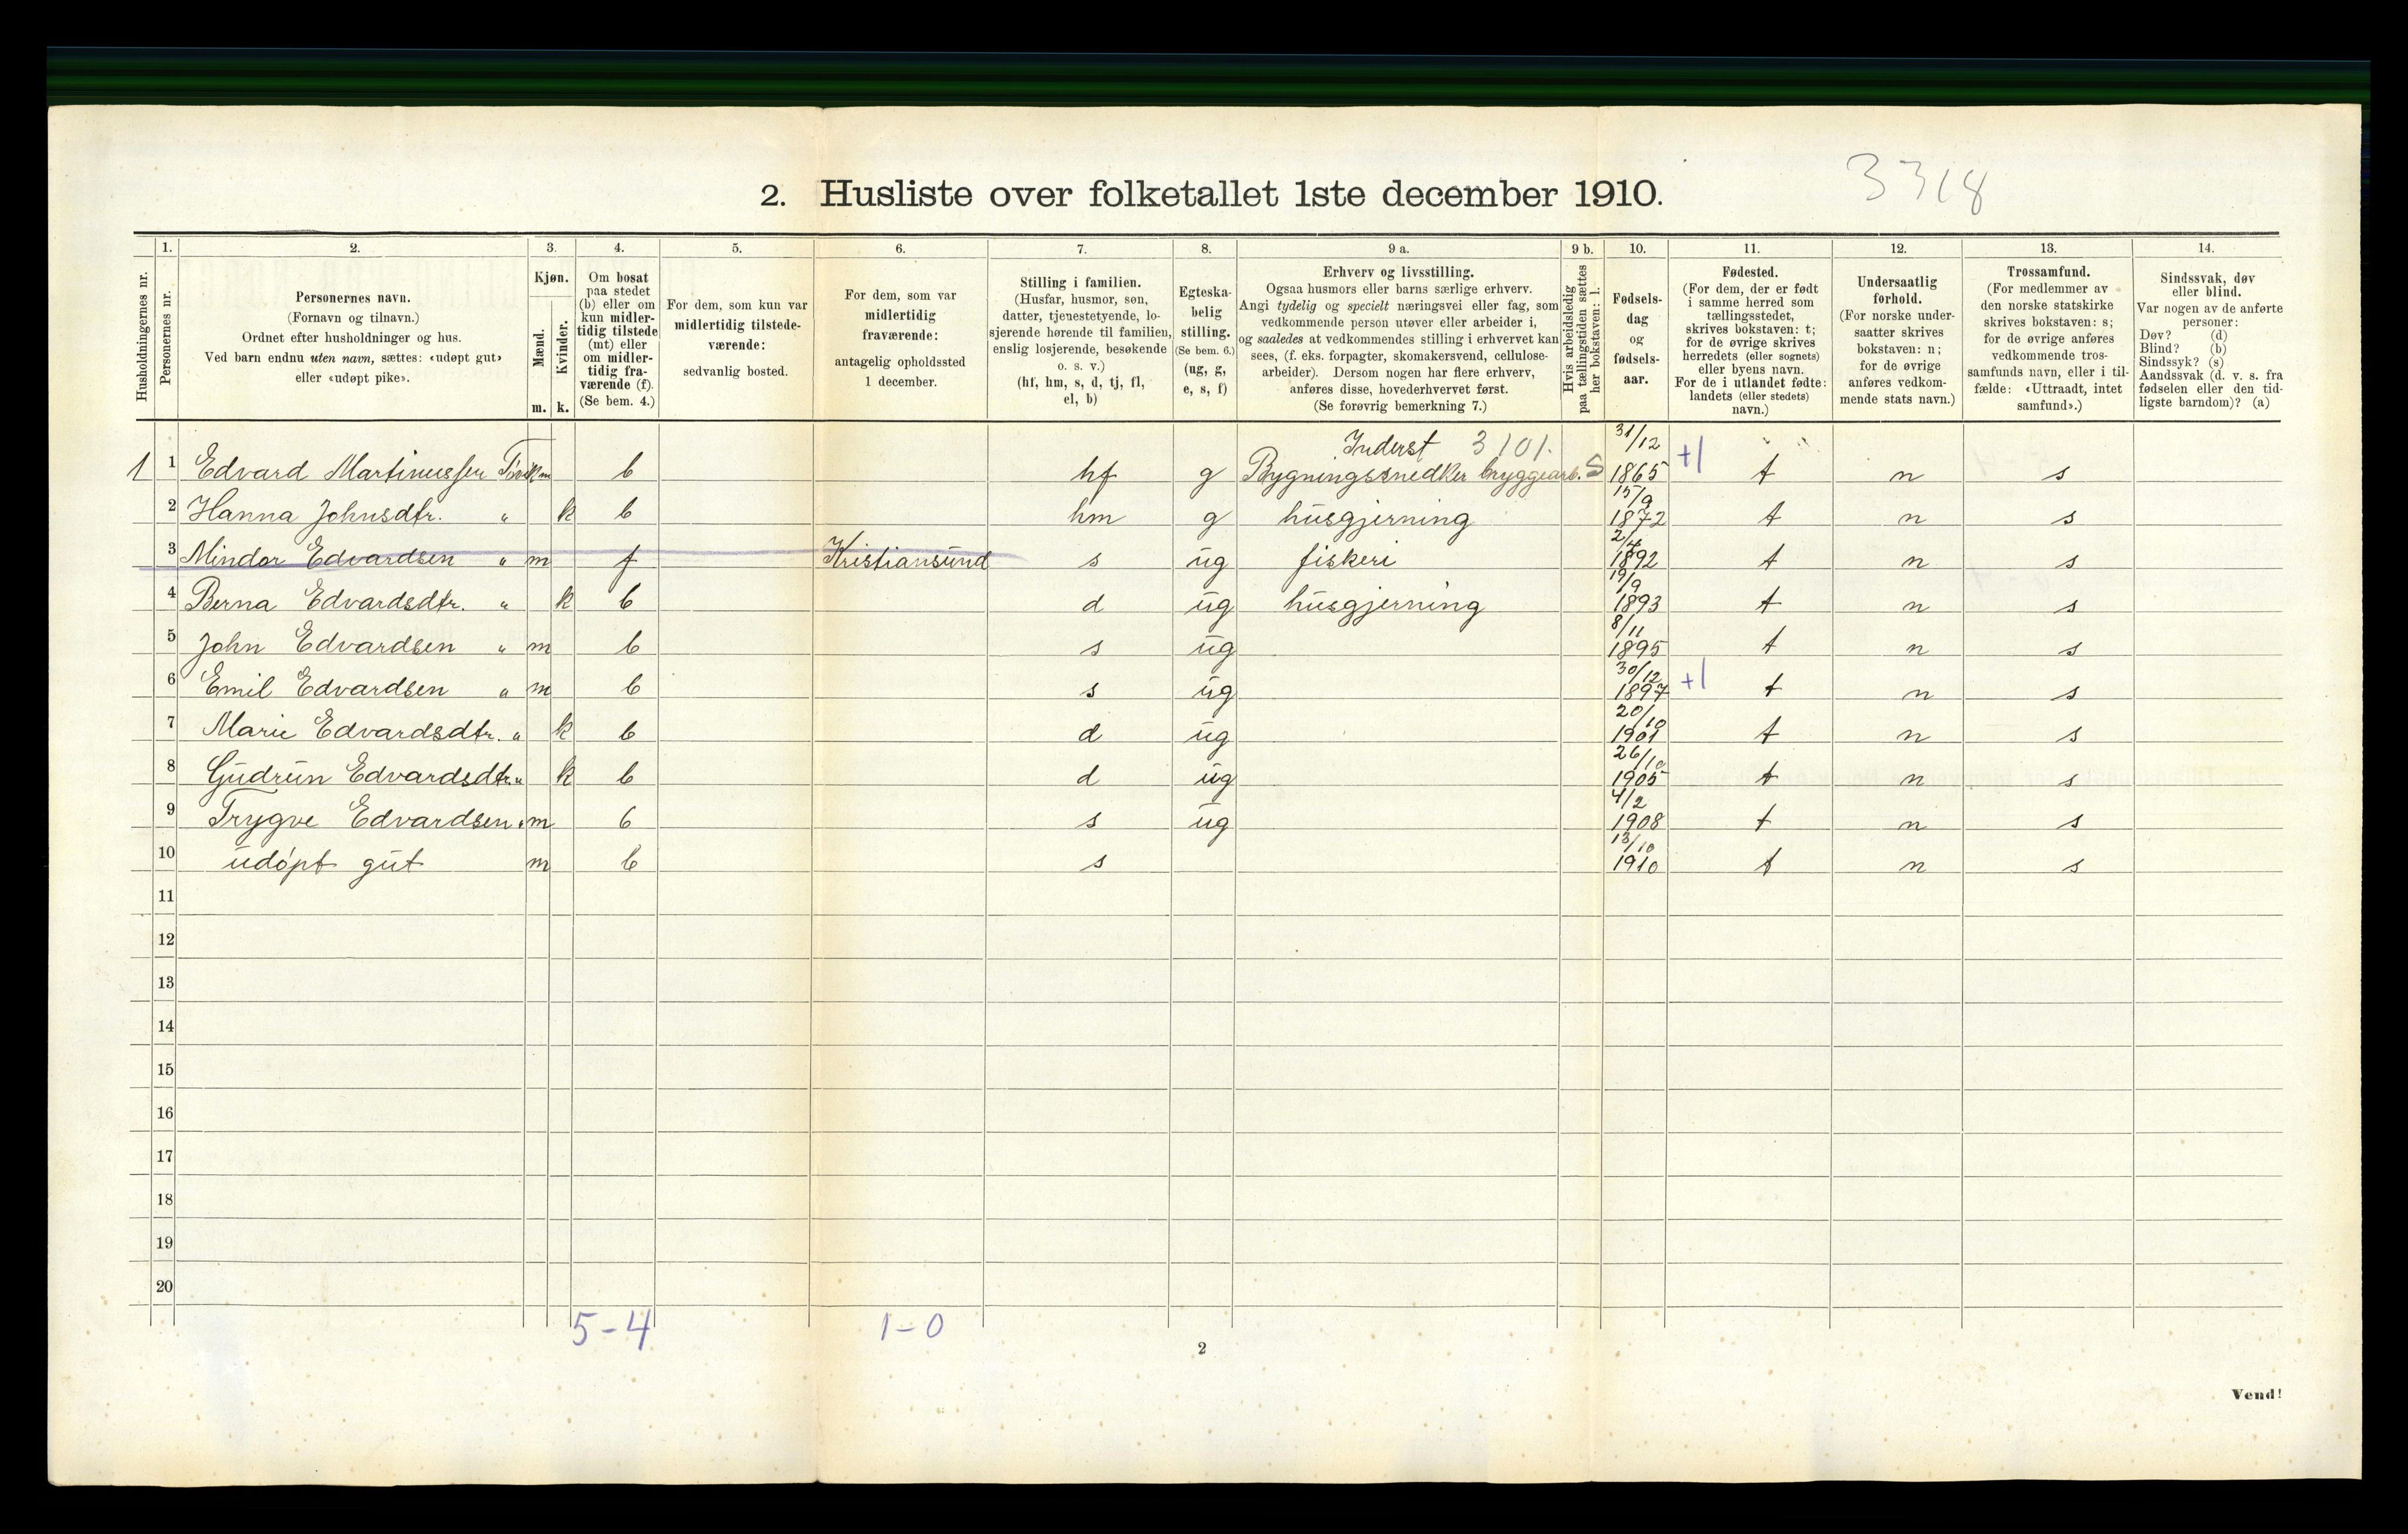 3318
2. Husliste over folketallet 1ste december 1910.
Husholdningernes nr.
1.
Personernes nr.
2.
Personernes navn.
(Fornavn og tilnavn.)
Ordnet efter husholdninger og hus.
Ved barn endnu uten navn, sættes: «udøpt gut»
eller «udøpt pike».
3.
Kjøn.
Mænd.
Kvinder.
m. k.
4.
Om bosat
paa stedet
(b) eller om
kun midler-
tidig tilstede
(mt) eller
om midler-
tidig fra-
værende (f).
(Se bem. 4.)
5.
For dem, som kun var
midlertidig tilstede-
værende:
sedvanlig bosted.
6.
For dem, som var
midlertidig
fraværende:
antagelig opholdssted
1 december.
7.
Stilling i familien.
(Husfar, husmor, søn,
datter, tjenestetyende, lo-
sjerende hørende til familien,
enslig losjerende, besøkende
o. s. v.)
(hf, hm, s, d, tj, fl,
el, b)
8.
Egteska-
belig
stilling.
(Se bem. 6.)
(ug, g,
e, s, f)
9 a.
Erhverv og livsstilling.
Ogsaa husmors eller barns særlige erhverv.
Angi tydelig og specielt næringsvei eller fag, som
vedkommende person utøver eller arbeider i,
og saaledes at vedkommendes stilling i erhvervet kan
sees, (f. eks. forpagter, skomakersvend, cellulose-
arbeider). Dersom nogen har flere erhverv,
anføres disse, hovederhvervet først.
(Se forøvrig bemerkning 7.)
9 b.
Hvis arbeidsledig
paa tællingstiden sættes
her bokstaven: l.
10.
Fødsels-
dag
og
fødsels-
aar.
11.
Fødested.
(For dem, der er født
i samme herred som
tællingsstedet,
skrives bokstaven: t;
for de øvrige skrives
herredets (eller sognets)
eller byens navn.
For de i utlandet fødte:
landets (eller stedets)
navn.)
12.
Undersaatlig
forhold.
(For norske under-
saatter skrives
bokstaven: n;
for de øvrige
anføres vedkom-
mende stats navn.)
13.
Trossamfund.
(For medlemmer av
den norske statskirke
skrives bokstaven: s;
for de øvrige anføres
vedkommende tros-
samfunds navn, eller i til-
fælde: «Uttraadt, intet
samfund».)
14.
Sindssvak, døv
eller blind.
Var nogen av de anførte
personer:
Døv? (d)
Blind? (b)
Sindssyk? (s)
Aandssvak (d. v. s. fra
fødselen eller den tid-
ligste barndom)? (a)
Inderst 3101. 31/12
1 1 Edvard Martinussen m b hf g Bygningssnedker bryggearb. S 1865 +1 t n s
2 Hanna Johnsdtr. " k b hm g husgjerning 15/9 1872 t n s
3 Mindor Edvardsen " m f Kristiansund s ug fiskeri 2/4 1892 t n s
4 Berna Edvardsdtr. " k b d ug husgjerning 19/9 1893 t n s
5 John Edvardsen " m b s ug 8/11 1895 t n s
6 Emil Edvardsen " m b s ug 30/12 1897 +1 t n s
7 Marie Edvardsdtr. " k b d ug 20/10 1901 t n s
8 Gudrun Edvardsdtr. " k b d ug 26/10 1905 t n s
9 Trygve Edvardsen " m b s ug 4/2 1908 t n s
10 udøpt gut m b s 13/10 1910 t n s
11
12
13
14
15
16
17
18
19
20
5-4 1-0
2
Vend!